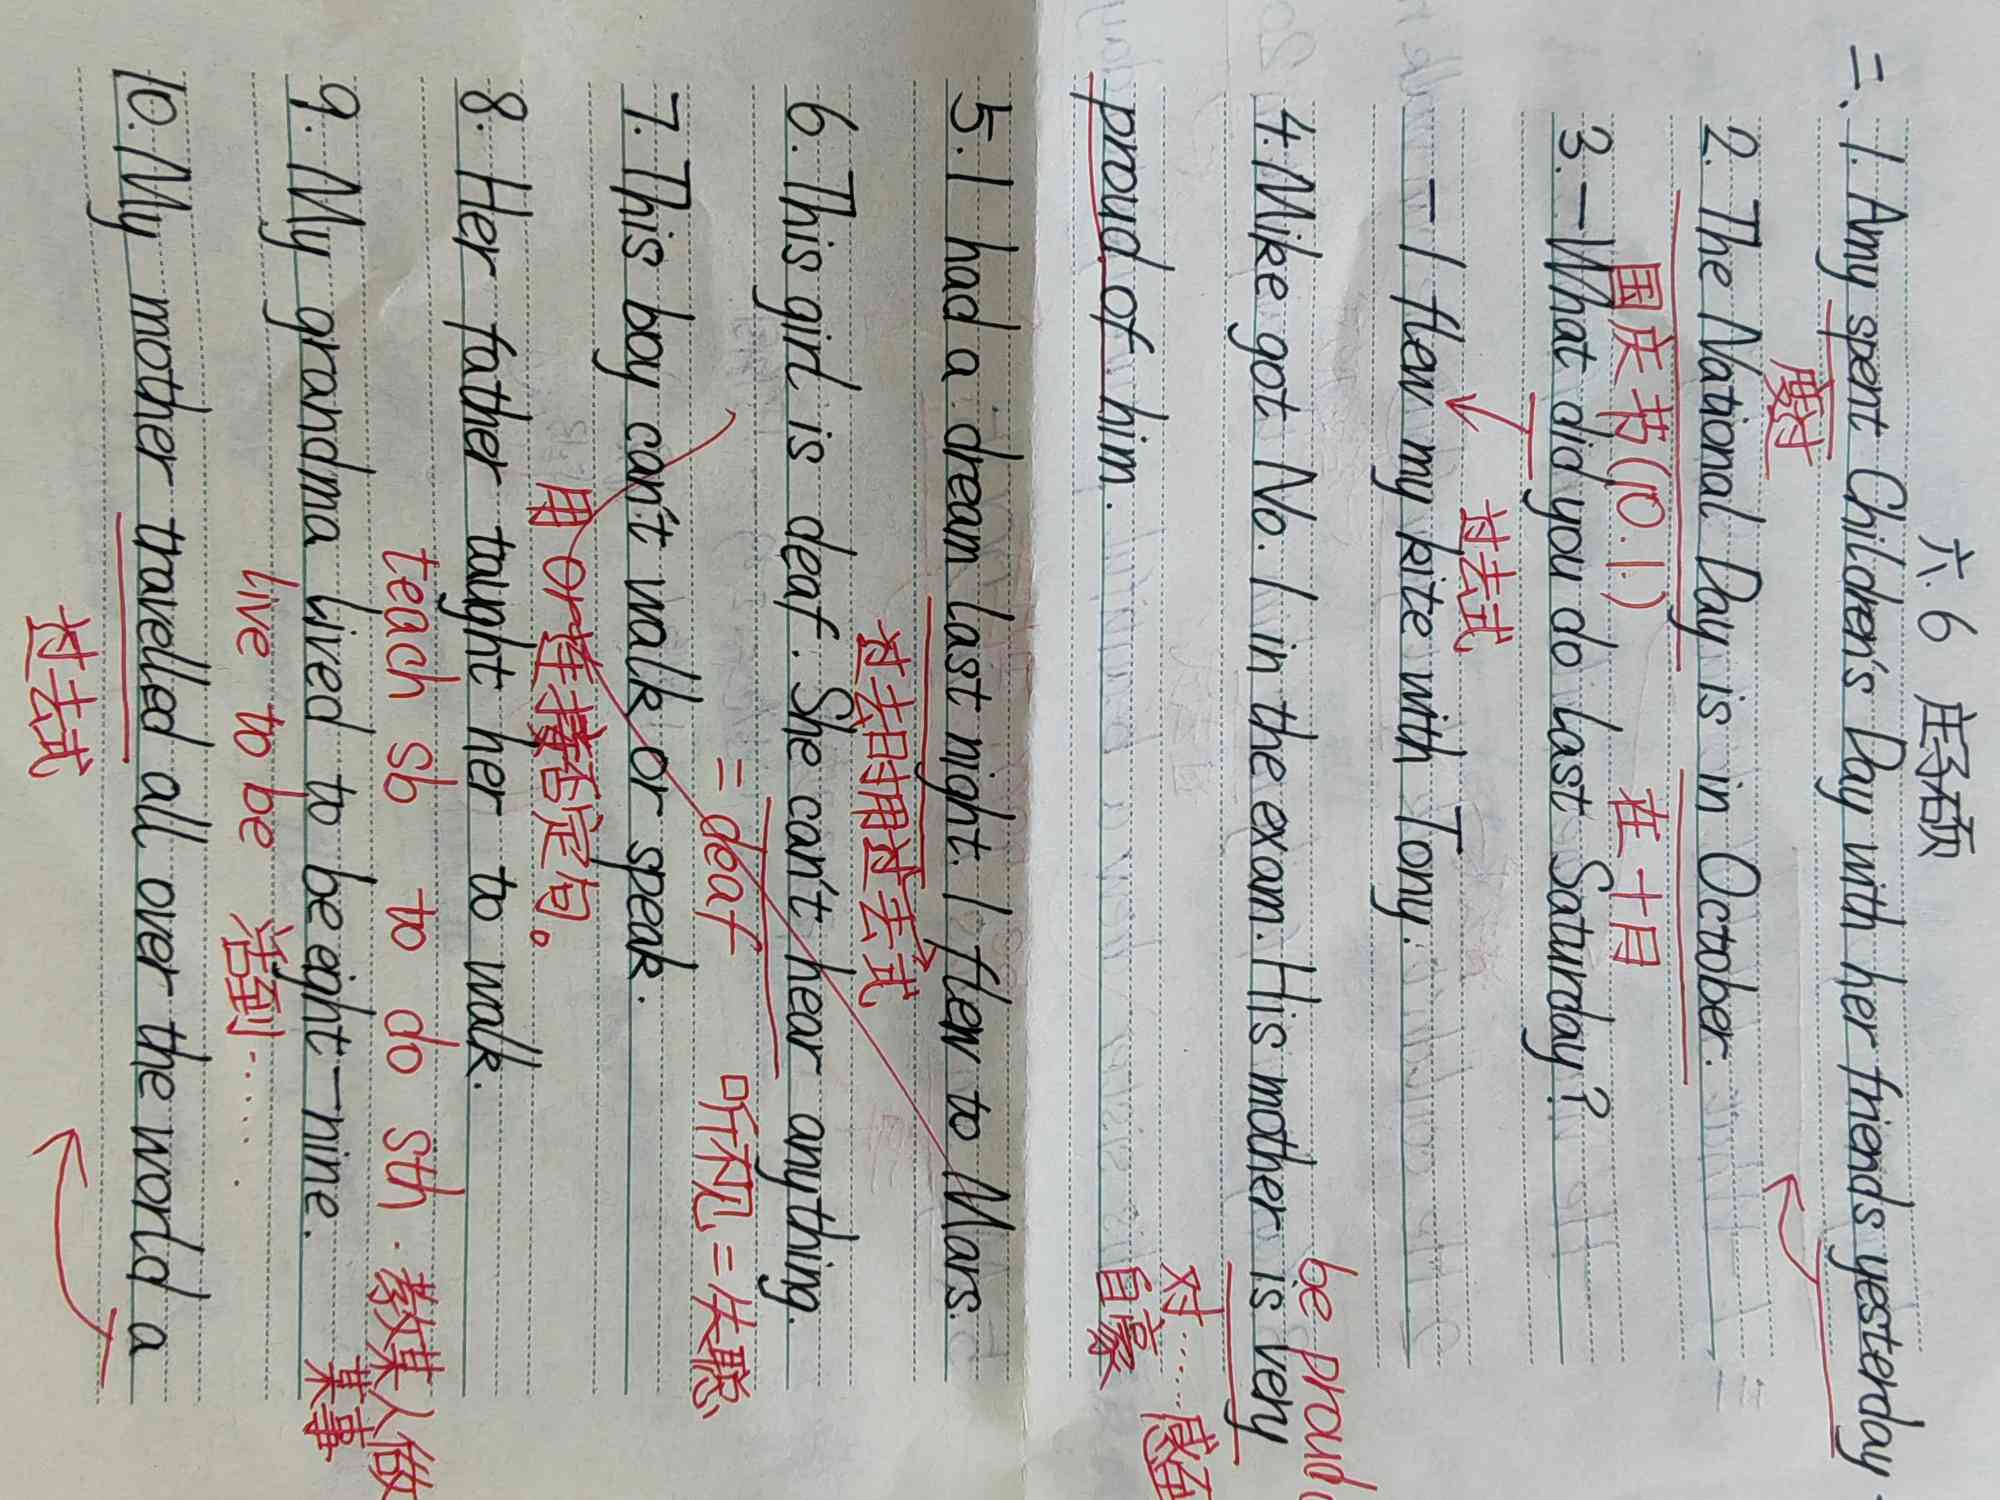 六.6 屈子硕
二. 1. Amy spent Children's Day with her friends yesterday.
度过
2. The National Day is in October.
国庆节(10.1.) 在十月
3. —What did you do last Saturday?
过去式
— I flew my kite with Tony.
4. Mike got No. 1 in the exam. His mother is very
be proud
对……感到
proud of him.
自豪
5. I had a dream last night. I flew to Mars.
过去时用过去式
6. This girl is deaf. She can't hear anything.
= deaf 听不见=失聪
7. This boy can't walk or speak.
用 or 连接否定句。
8. Her father taught her to walk.
teach sb to do sth. 教某人做
某事
9. My grandma lived to be eight-nine.
live to be 活到……
10. My mother travelled all over the world a
过去式